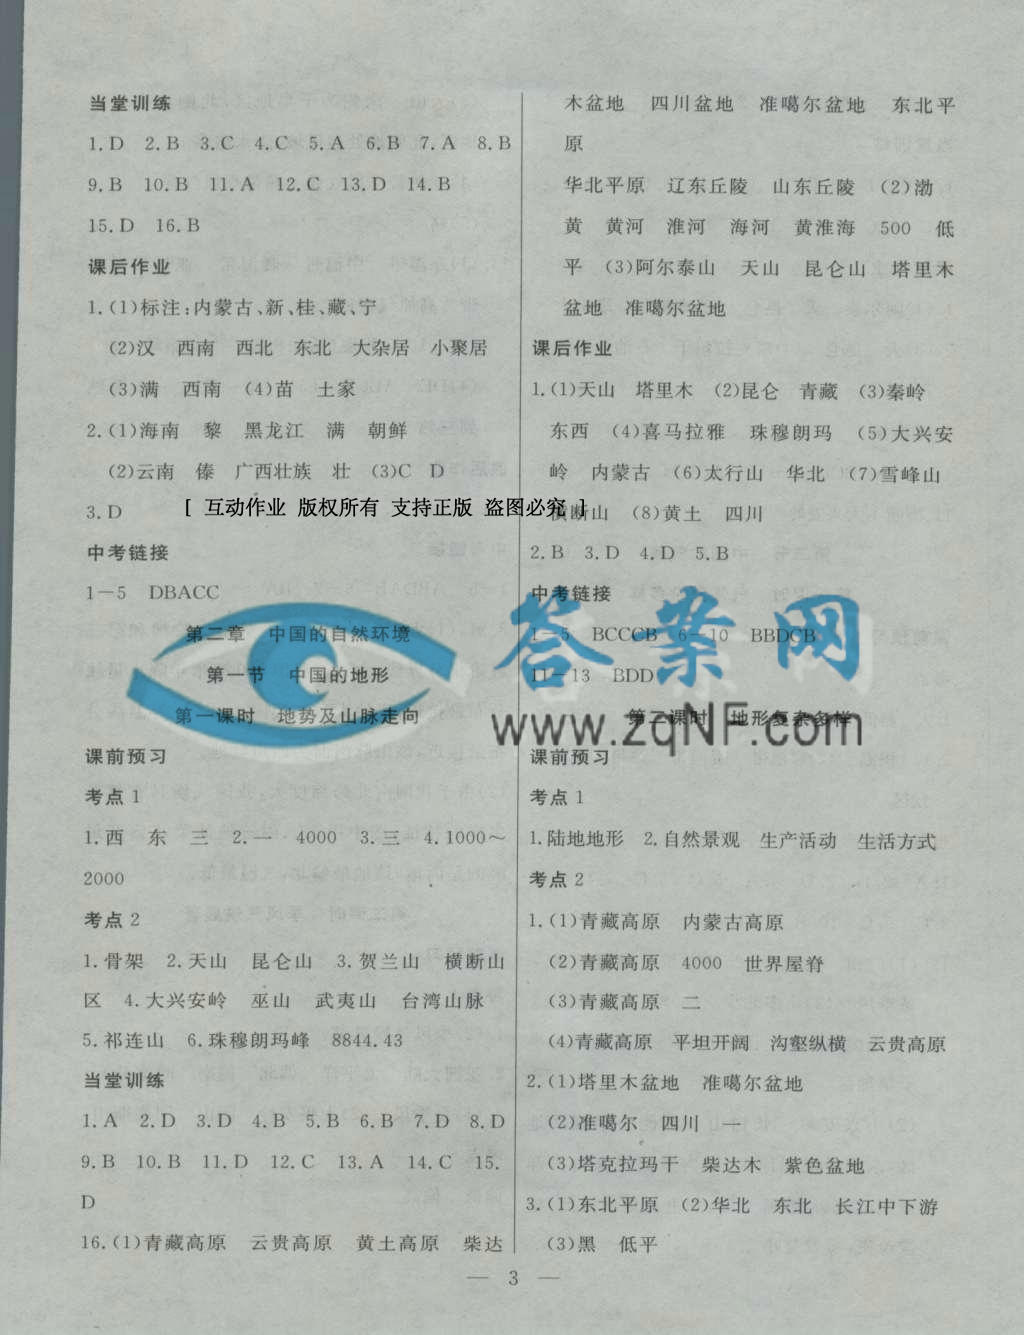 当堂训练
1.D 2.B 3.C 4.C 5.A 6.B 7.A 8.B
9.B 10.B 11.A 12.C 13.D 14.B
15.D 16.B
课后作业
1.(1)标注:内蒙古、新、桂、藏、宁
(2)汉 西南 西北 东北 大杂居 小聚居
(3)满 西南 (4)苗 土家
2.(1)海南 黎 黑龙江 满 朝鲜
(2)云南 傣 广西壮族 壮 (3)C D
3.D
[ 互动作业 版权所有 支持正版 盗图必究 ]
中考链接
1—5 DBACC
第二章 中国的自然环境
第一节 中国的地形
第一课时 地势及山脉走向
课前预习
考点1
1.西 东 三 2.一 4000 3.三 4.1000～
2000
考点2
1.骨架 2.天山 昆仑山 3.贺兰山 横断山
区 4.大兴安岭 巫山 武夷山 台湾山脉
5.祁连山 6.珠穆朗玛峰 8844.43
当堂训练
1.A 2.D 3.D 4.B 5.B 6.B 7.D 8.D
9.B 10.B 11.D 12.C 13.A 14.C 15.
D
16.(1)青藏高原 云贵高原 黄土高原 柴达
木盆地 四川盆地 准噶尔盆地 东北平
原
华北平原 辽东丘陵 山东丘陵 (2)渤
黄 黄河 淮河 海河 黄淮海 500 低
平 (3)阿尔泰山 天山 昆仑山 塔里木
盆地 准噶尔盆地
课后作业
1.(1)天山 塔里木 (2)昆仑 青藏 (3)秦岭
东西 (4)喜马拉雅 珠穆朗玛 (5)大兴安
岭 内蒙古 (6)太行山 华北 (7)雪峰山
横断山 (8)黄土 四川
2.B 3.D 4.D 5.B
中考链接
1—5 BCCCB 6—10 BBDCB
11—13 BDD
答案网
www.zqNF.com
第二课时 地形复杂多样
课前预习
考点1
1.陆地地形 2.自然景观 生产活动 生活方式
考点2
1.(1)青藏高原 内蒙古高原
(2)青藏高原 4000 世界屋脊
(3)青藏高原 二
(4)青藏高原 平坦开阔 沟壑纵横 云贵高原
2.(1)塔里木盆地 准噶尔盆地
(2)准噶尔 四川 一
(3)塔克拉玛干 柴达木 紫色盆地
3.(1)东北平原 (2)华北 东北 长江中下游
(3)黑 低平
— 3 —